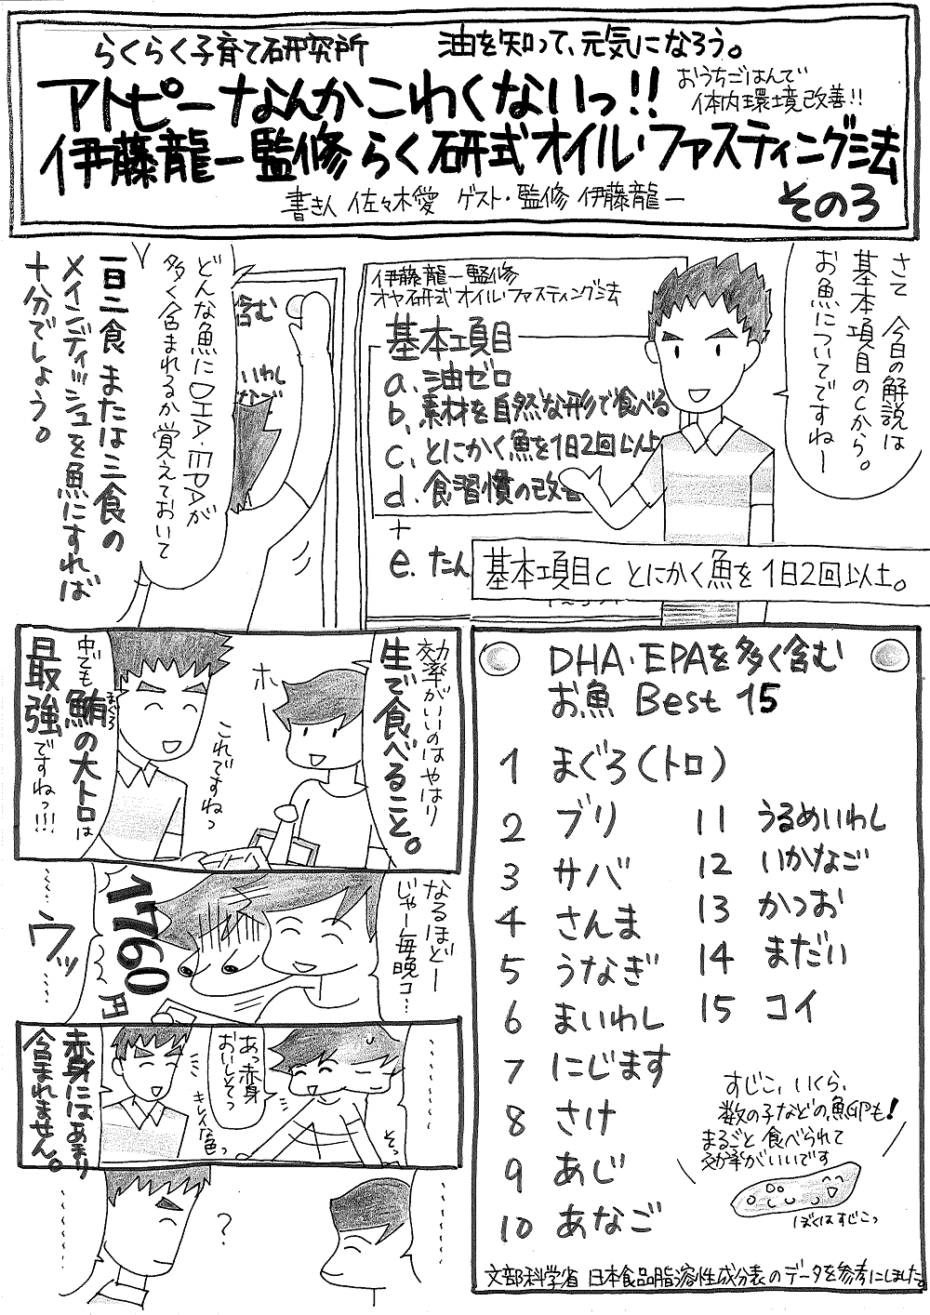 らくらく子育て研究所
油を知って、元気になろう。
アトピーなんかこわくないっ!!
おうちごはんで
体内環境改善!!
伊藤龍一監修 らく研式オイル・ファスティング法
書き人 佐々木愛 ゲスト・監修 伊藤龍一
その3
さて 今日の解説は
基本項目のcから。
お魚についてですねー
伊藤龍一監修
オヤ研式 オイル・ファスティング法
基本項目
a. 油ゼロ
b. 素材を自然な形で食べる
c. とにかく魚を1日2回以上
d. 食習慣の改善
+
e. たん
基本項目c とにかく魚を1日2回以上。
含む
いわし
なご
どんな魚にDHA・EPAが
多く含まれるか覚えておいて
一日二食または三食の
メインディッシュを魚にすれば
十分でしょう。
効率がいいのはやはり
生で食べること。
ホ
これですねっ
中でも鮪の大トロは
まぐろ
最強ですねっ!!!
なるほどー
じゃー毎晩コ…
1760円
……ウッ……
………
あっ赤身
おいしそうっ
キレイな色っ
そっ
赤身にはあまり
含まれません。
………
?
………
DHA・EPAを多く含む
お魚 Best 15
1 まぐろ(トロ)
2 ブリ
3 サバ
4 さんま
5 うなぎ
6 まいわし
7 にじます
8 さけ
9 あじ
10 あなご
11 うるめいわし
12 いかなご
13 かつお
14 まだい
15 コイ
すじこ、いくら、
数の子などの魚卵も!
まるごと食べられて
効率がいいです
ぼくはすじこっ
文部科学省 日本食品脂溶性成分表のデータを参考にしました。